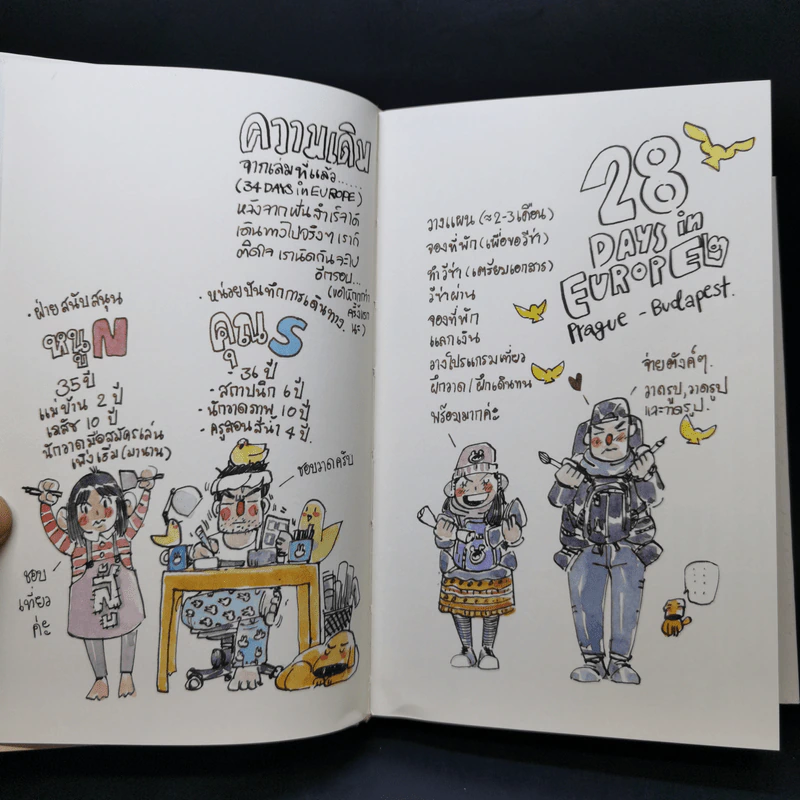 ความเดิม
จากเล่มที่แล้ว.....
(34 DAYS in EUROPE)
หลังจากฝันสำเร็จได้
เดินทางไปจริงๆ เราก็
ติดใจ เรานัดกันจะไป
อีกรอบ...
(ขอให้ถูกกว่า
ครั้งแรก
นะ)
• ฝ่ายสนับสนุน
หนู N
35 ปี
แม่บ้าน 2 ปี
เภสัช 10 ปี
นักวาดมือสมัครเล่น
เพิ่งเริ่ม (มานาน)
• หน่วยบันทึกการเดินทาง.
คุณ S
36 ปี
- สถาปนิก 6 ปี
- นักวาดภาพ 10 ปี
- ครูสอนสีน้ำ 4 ปี.
ชอบวาดครับ
ชอบ
เที่ยว
ค่ะ
สู้
28
DAYS in
EUROPE ๒
Prague - Budapest.
วางแผน (≈ 2-3 เดือน)
จองที่พัก (เพื่อขอวีซ่า)
ทำวีซ่า (เตรียมเอกสาร)
วีซ่าผ่าน
จองที่พัก
แลกเงิน
วางโปรแกรมเที่ยว
ฝึกวาด / ฝึกเดินทน
พร้อมมากค่ะ
จ่ายตังค์ๆ.
วาดรูป, วาดรูป
และวาดรูป.